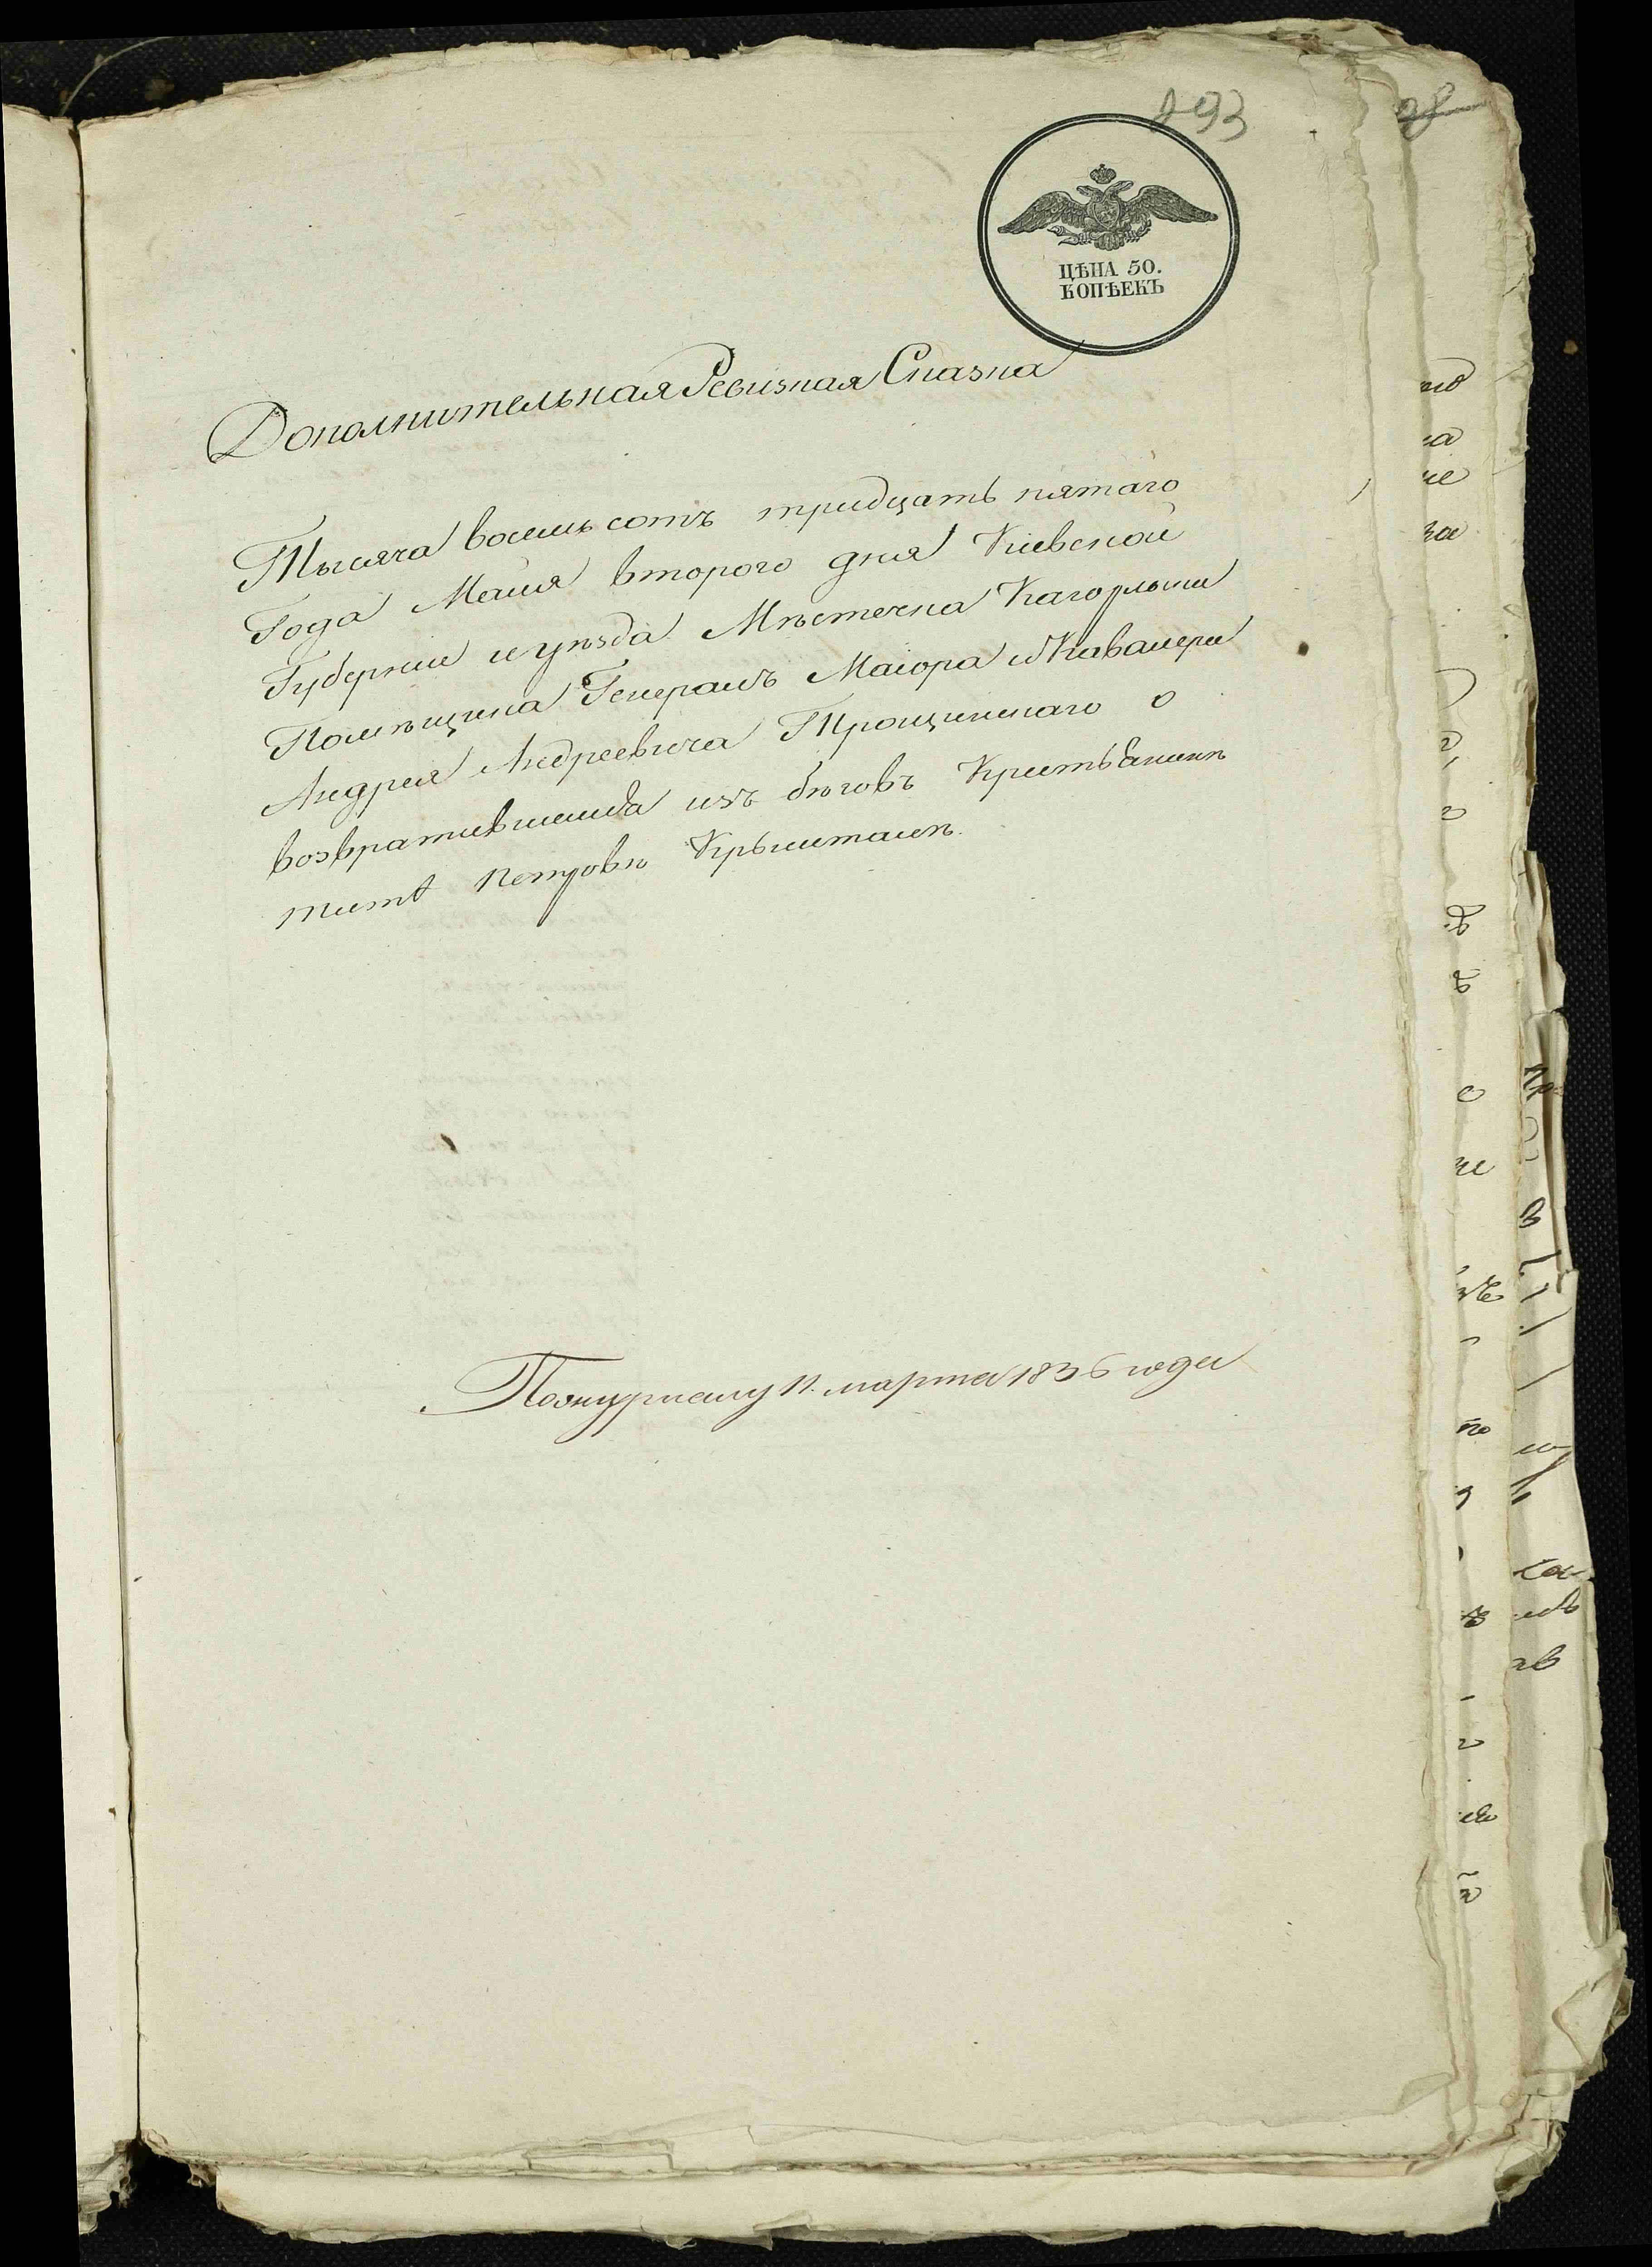 893
ЦѢНА 50.
КОПѢЕКЪ
Дополнительная Ревизная Сказка
Тысяча восемь сотъ тридцать пятаго
Года Маия второго дня Киевской
Губернии и уѣзда Мѣстечка Кагорлыка
Помѣщика Генералъ Маіора и Кавалера
Андрея Андреевича Трощинскаго о
возвратившемся изъ бѣговъ Крестьянинѣ
Титѣ Петровѣ
По журналу 11. марта 1836 года